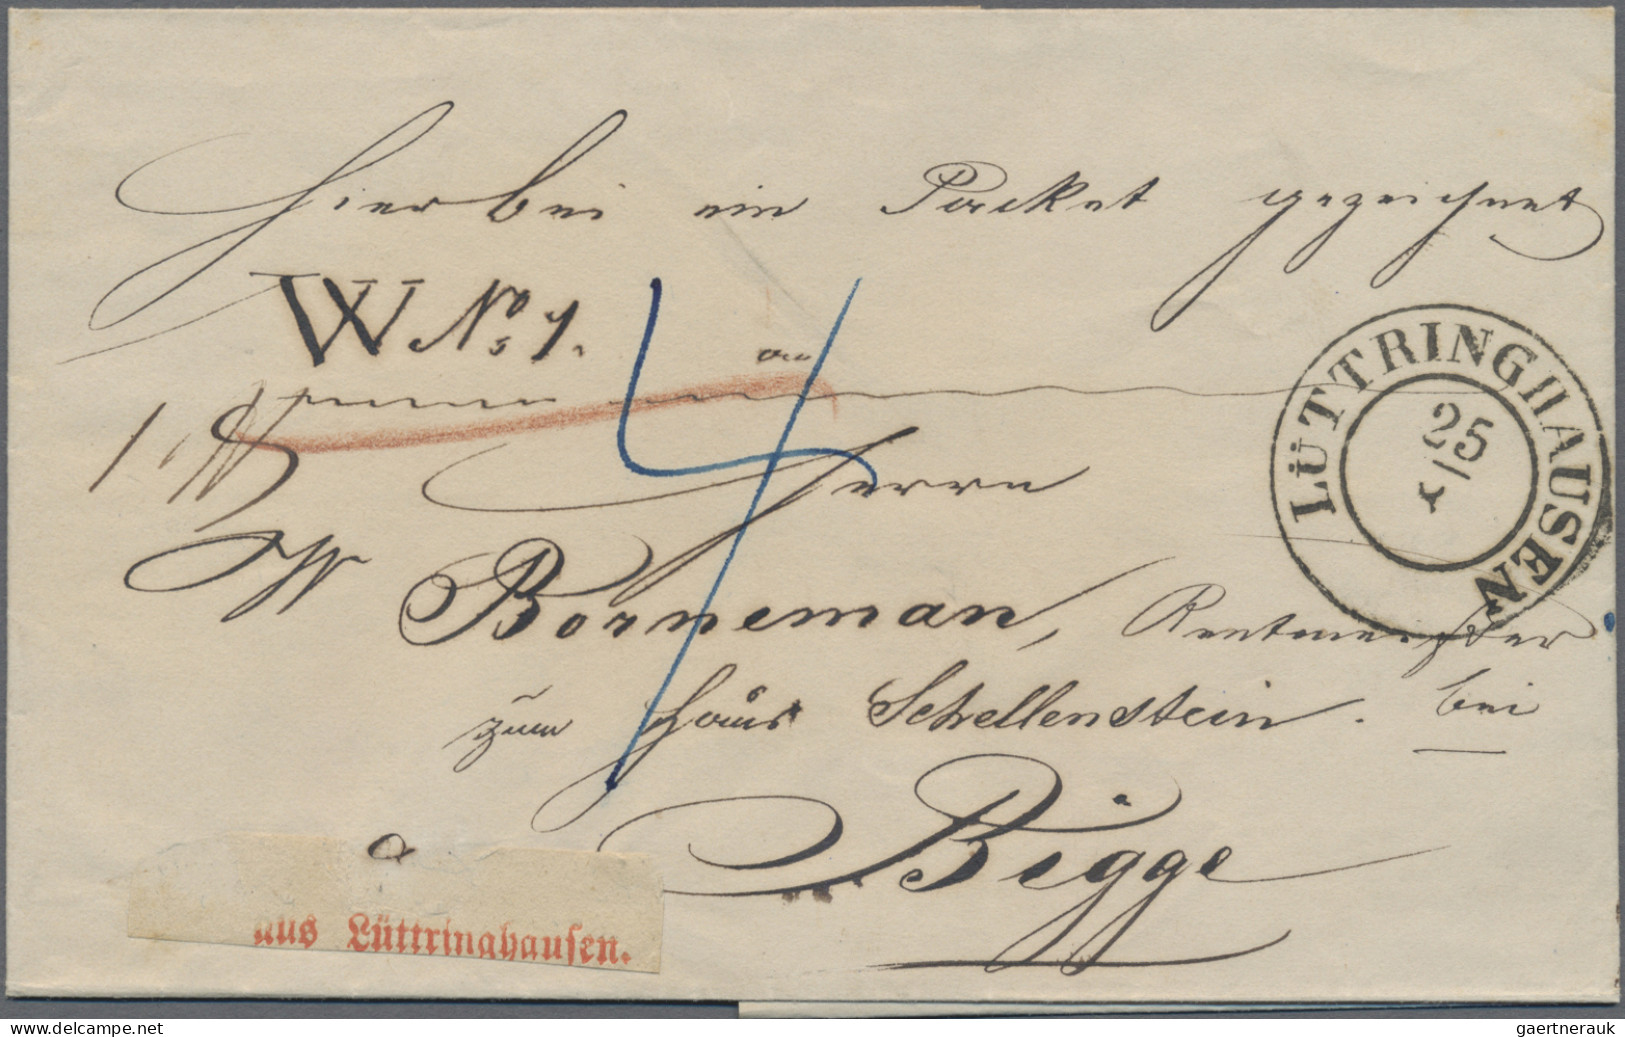 Hierbei ein Packet gezeichnet
W No 1.
an
Herrn
W
Borneman, Rentmeister
zum Haus Schellenstein. bei
Bigge
LÜTTRINGHAUSEN
25
aus Lüttringhausen.
4
www.delcampe.net
gaertnerauk